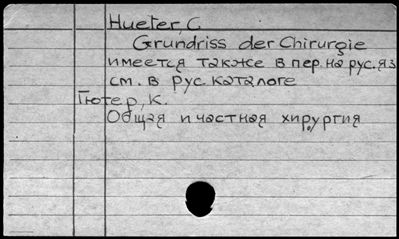 Hueter, C.
Grundriss der Chirurgie
имеется также в пер. на рус. яз
см. в рус. каталоге
Гютер, К.
Общая и частная хирургия